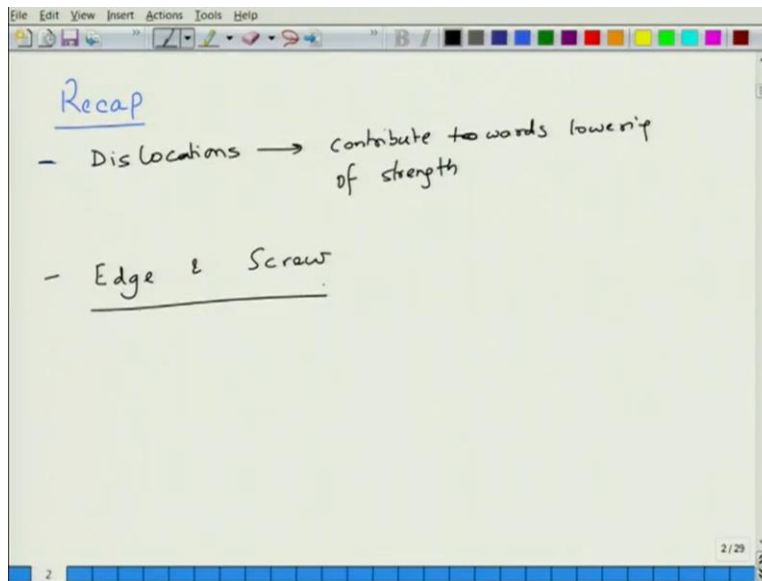 File Edit View Insert Actions Tools Help
Recap
- Dislocations → contribute towards lowering
of strength
- Edge & Screw
2/29
2